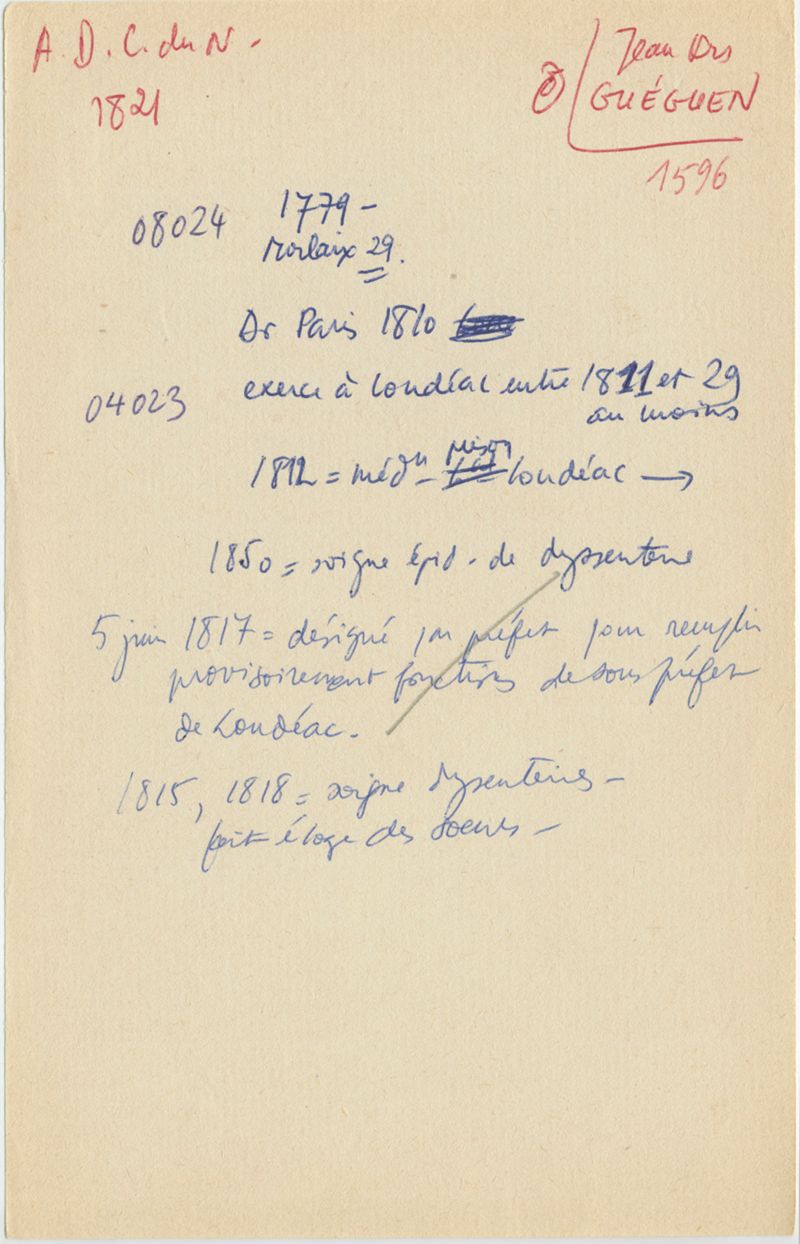 A. D. C. du N -
1821
Jean
GUÉGUEN
1596
08024
1779 -
Morlaix 29.
Dr Paris 1810
04023
exerce à Loudéac entre 1811 et 29
au moins
1812 = méd^n - prison Loudéac →
1850 = soigne épid. de dyssenterie
5 juin 1817 = désigné par préfet pour remplir
provisoirement fonctions de sous préfet
de Loudéac.
1815, 1818 = soigne dysenteries -
fait éloge des soeurs -